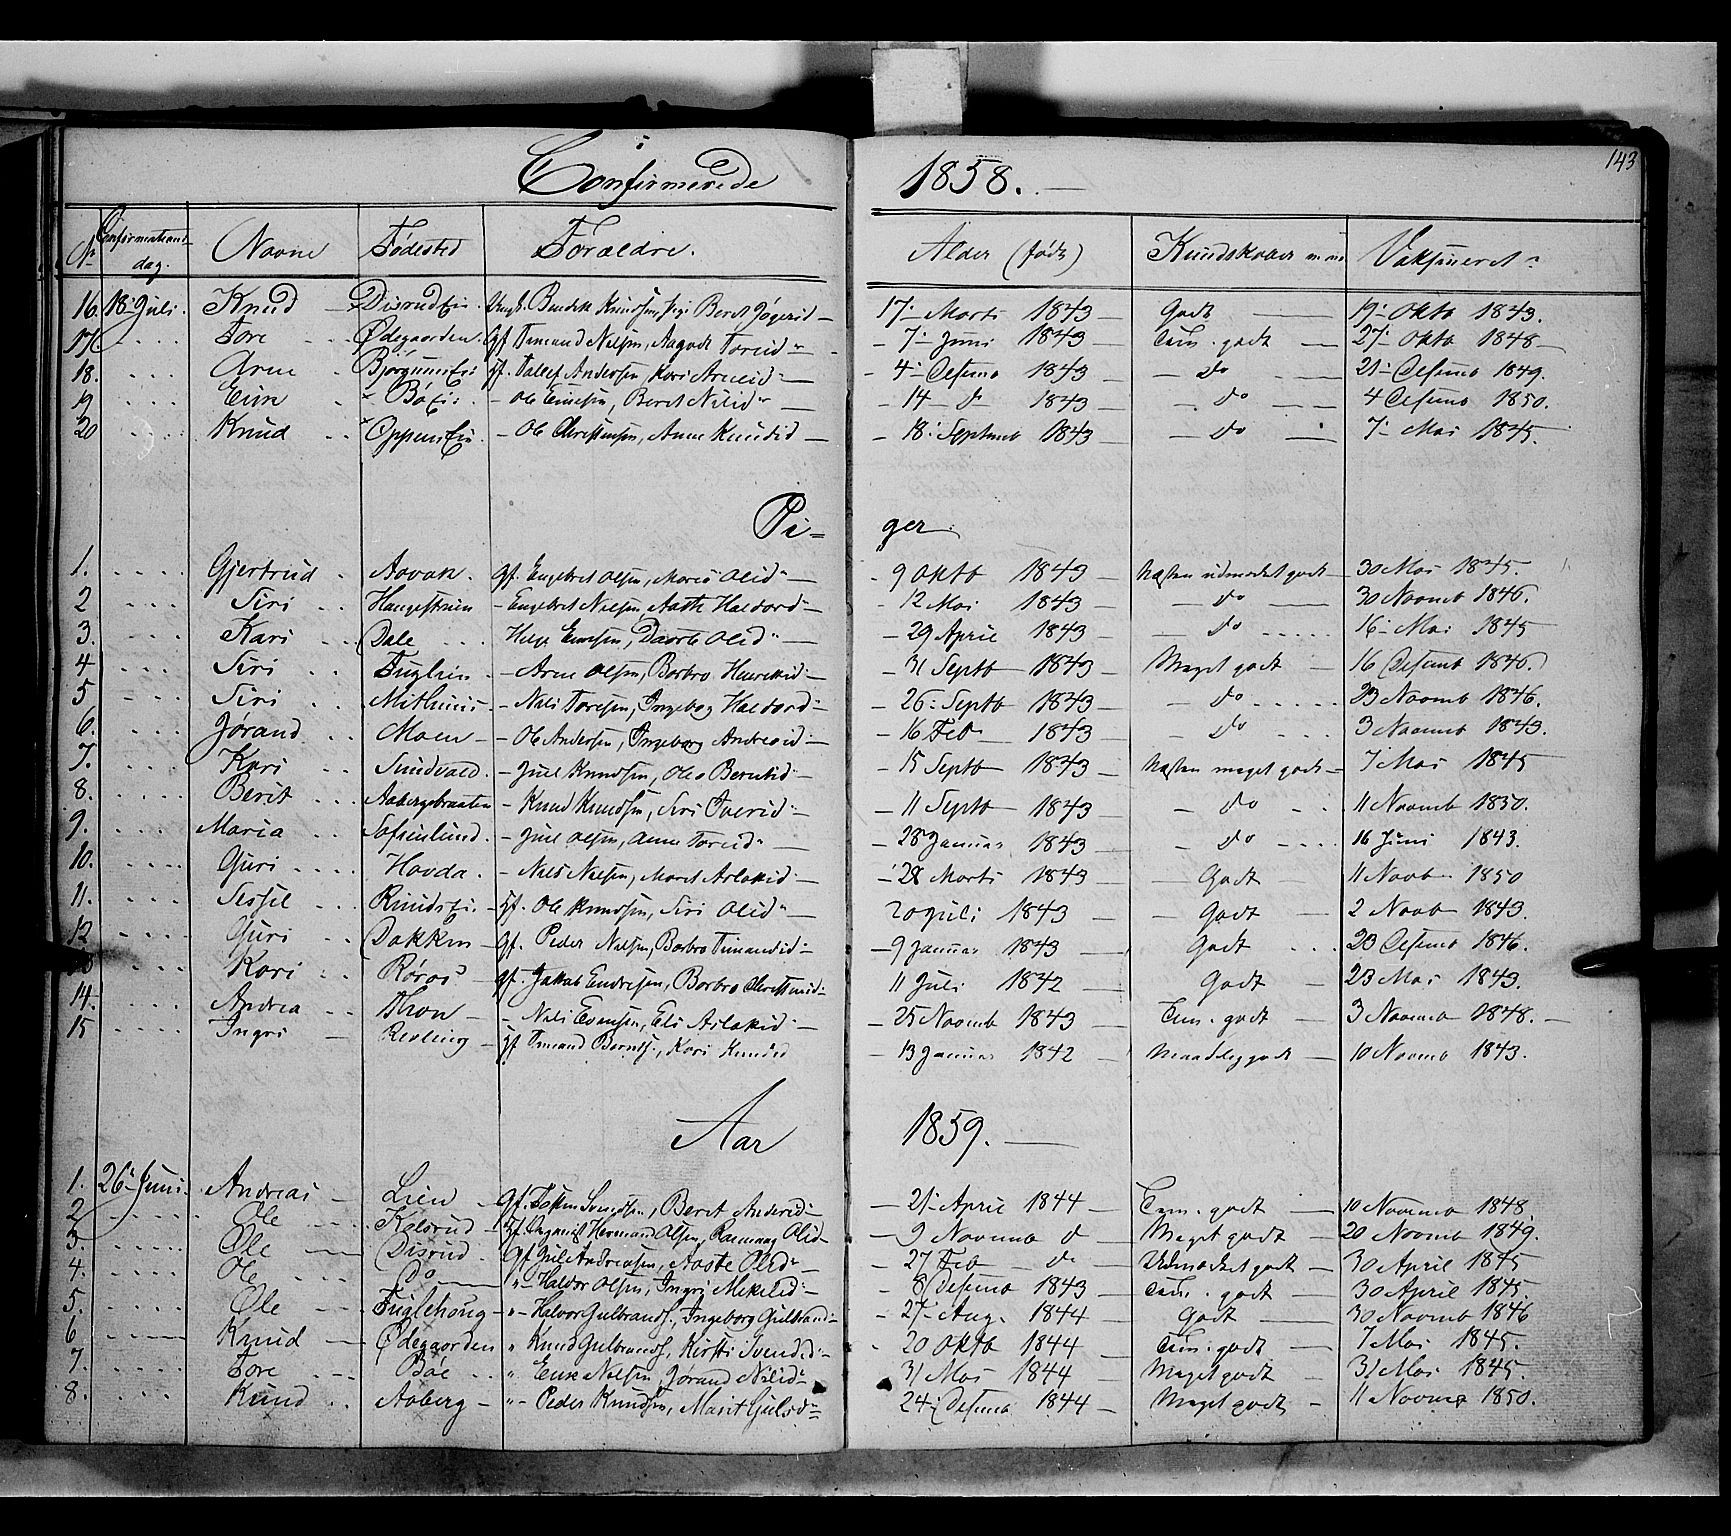 143
Confirmerede 1858.
No Confirmationsdag. Navne Fødested Forældre. Alder (født) Kundskaber Vaksineret
16. 18 Juli. Knud Disrud Ei. Bendik Knudsen, Berit 17 Marts 1843 Godt 19 Oktb 1843.
17. Tore Ødegaarden. gf. Nilsen, Aagodt Toreid 7 Juni 1843 Tem. godt 27 Oktb 1848
18. Arne gf. Andersen, Kari Arneid 4 Desemb 1843 do 21 Desemb 1849.
19 Einn Bø Ei. Ole Einesen, Beret Nilsd 14 d 1843 do 4 Desemb 1850.
20 Knud Oppen Ei. Ole Christensen, Anne Knudsd 18 Septemb 1843 do 7 Mai 1845.
Pi= ger.
1. Gjertrud Aavak. gf. Engebret Olsen, Maria Olsd 9 Oktb 1843 Næsten udmærket godt 30 Mai 1845.
2 Siri Haugestuen Engebret Nielsen, Aaste Halvord 12 Mai 1843 do 30 Novemb 1846.
3. Kari Dale Helge Einesen, Dorte Olsd 29 April 1843 do 16 Mai 1845
4 Siri Fuglein Arne Olsen, Barbro Henrikd 31 Septb 1843 Meget godt 16 Desemb 1846.
5 Siri Mithuus Nils Toresen, Ingebog Halvord 26 Septb 1843 do 23 Novemb 1846.
6. Jørand Moen Ole Andersen, Ingeborg Andresd 16 Feb 1843 do 3 Novemb 1843.
7. Kari Sundvold. Juel Knudsen, Olea Berntsd 15 Septb 1843 Næsten meget godt 7 Mai 1845
8. Berit Aabergsbraaten Knud Knudsen, Siri Iversd 11 Septb 1843 do 11 Novemb 1850.
9. Maria Sofienlund. Juel Olsen, Anne Toresd 28 Januar 1843 do 16 Juni 1843.
10. Guri Hovda. Niels Nielsen, Maret Aslakd 28 Marts 1843 Godt 11 Novb 1850
11. Sessil Ruuds Ei. gf. Ole Knudsen, Siri Olsd 20 Juli 1843 Godt 2 Novb 1843.
12 Guri Dokken gf. Peder Nilsen, Barbro Timandsd 9 Januar 1843 Godt 23 Desemb 1846.
13 Kari Røraas gf. Jakob Endresen, Barbro Christensd 11 Juli 1842 Godt 23 Mai 1843.
14. Andrea Thon Nils Evensen, Eli Aslakd 25 Novemb 1843 Tem. godt 3 Novemb 1848.
15 Ingri Revling gf. Timand Berntsen, Kari Knudsd 13 Januar 1842 Maadelig godt 10 Novemb 1843.
Aar 1859.
1. 26 Juni. Andreas Lien gf. Svendsen, Beret Andersd 21 April 1844 Tem. godt 10 Novemb 1848.
2 Ole Kolsrud gf. Organist Herman Olsen, Rannaug Olsd 9 Novemb d Meget godt 20 Novemb 1849.
3. Ole Disrud. gf. Jul Andreasen, Aaste Olsd 27 Feb d Udmærket godt 30 April 1845
4. Ole Do Halvor Olsen, Ingri Mekelsd 8 Desemb 1843 Tem. godt 30 April 1845.
5. Ole Fuglehaug Halvor Gulbrands., Ingeborg Gulbrand 27 Aug. 1844 Godt 30 Novemb 1846
6 Knud Ødegaarden Knud Gulbrands., Kirsti Svendsd 20 Oktb 1844 Tem. godt 7 Mai 1845.
7. Tore Bøe Even Nilsen, Jørand Nilsd 31 Mai 1844 Meget godt 31 Mai 1845.
8. Knud Aaberg Peder Knudsen, Marit Gulsd 24 Desemb 1844 Meget godt 11 Novemb 1850.